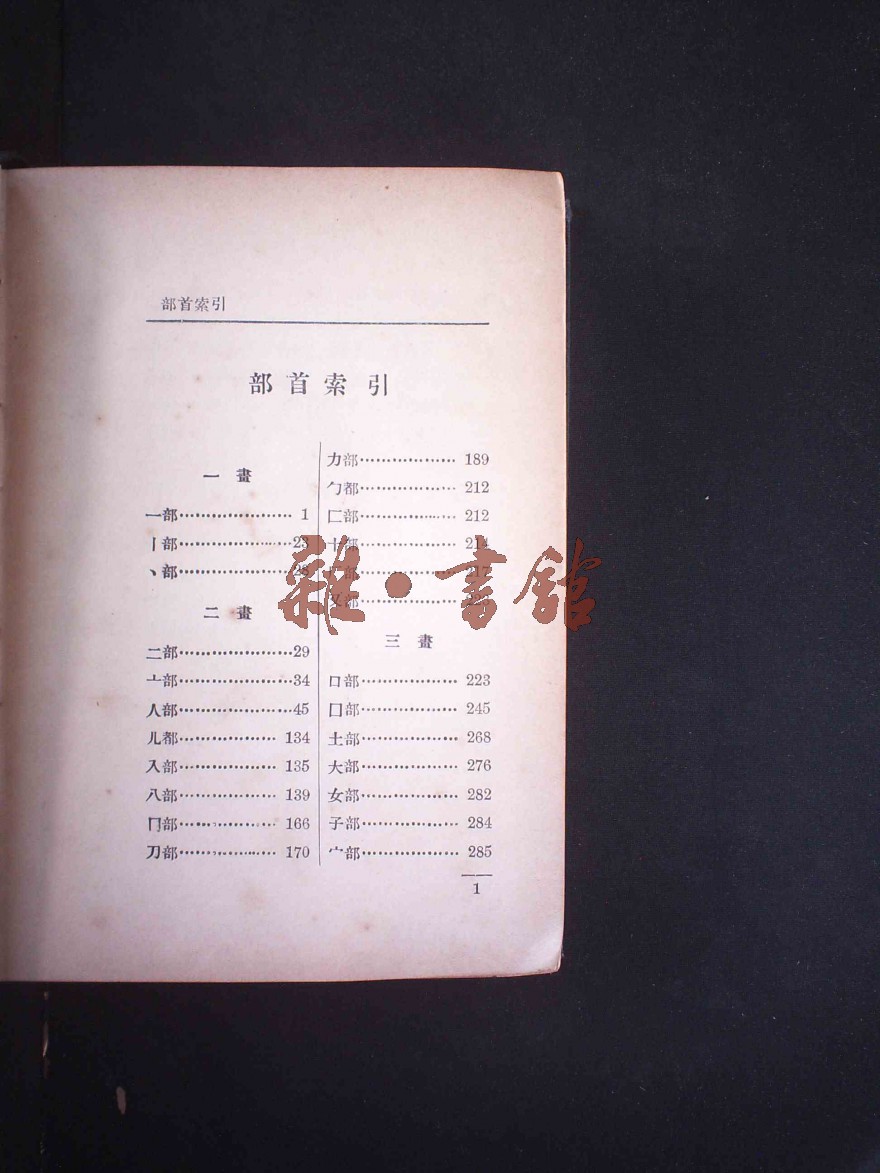 部首索引
部首索引
一畫
一部………………… 1
丨部…………………23
丶部…………………28
二畫
二部…………………29
亠部…………………34
人部…………………45
儿都………………… 134
入部………………… 135
八部………………… 139
冂部………………… 166
刀部………………… 170
力部………………… 189
勹都………………… 212
匚部………………… 212
十部………………… 214
部………………… 217
又部…………………
三畫
口部………………… 223
囗部………………… 245
土部………………… 268
大部………………… 276
女部………………… 282
子部………………… 284
宀部………………… 285
1
雜·書館